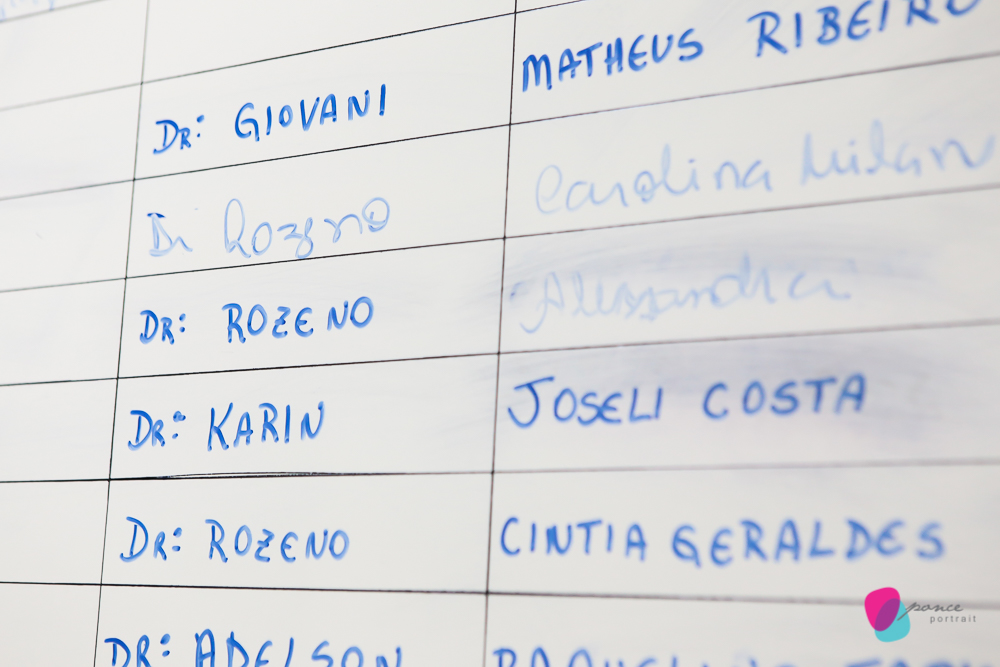 DR: GIOVANI MATHEUS RIBEIRO
Dr Rozeno Carolina Milan
DR: ROZENO Alessandra
DR: KARIN JOSELI COSTA
DR: ROZENO CINTIA GERALDES
DR: ADELSON
ponce
portrait